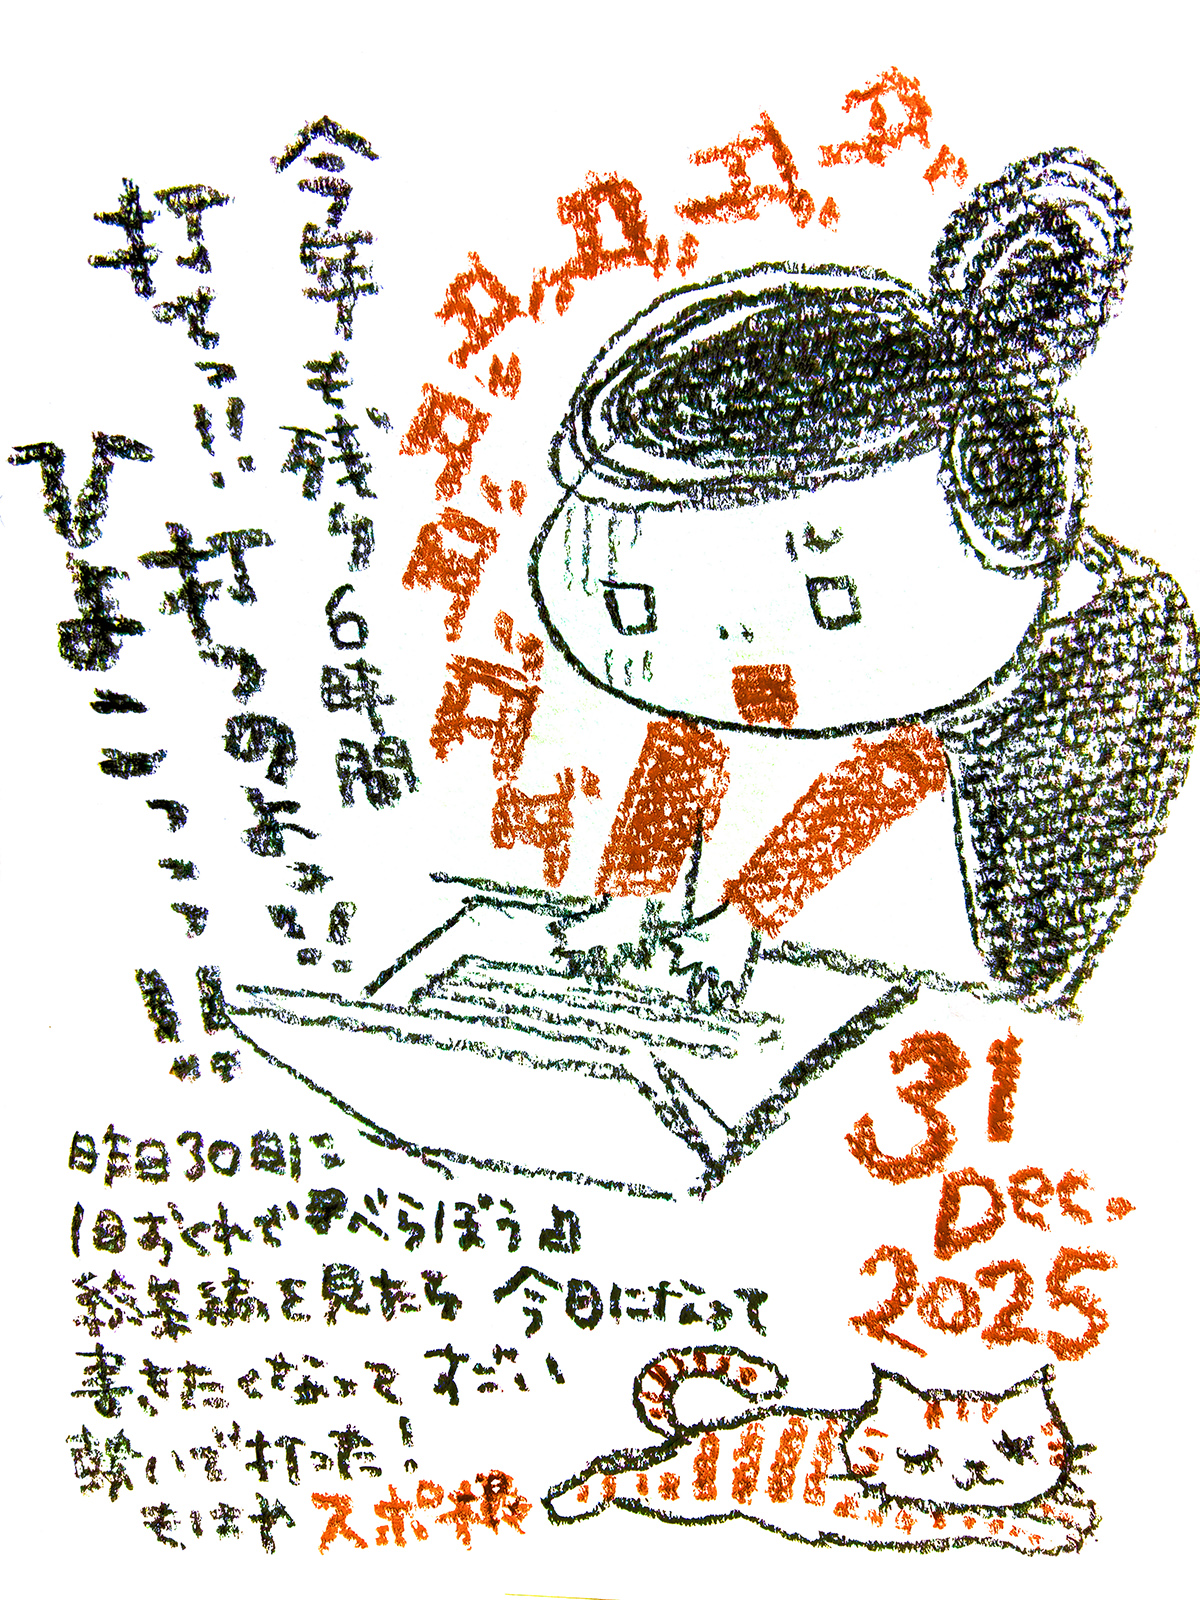 ダダダダダダダダ
今年も残り6時間
打てぃ!!
打つのよぉ!!
ひょーーっっっ!!
31
Dec.
2025
昨日30日に
1日おくれでべらぼうの
総集編を見たら 今日になって
書きたくなって すごい
勢いで打った!
もはや スポ根